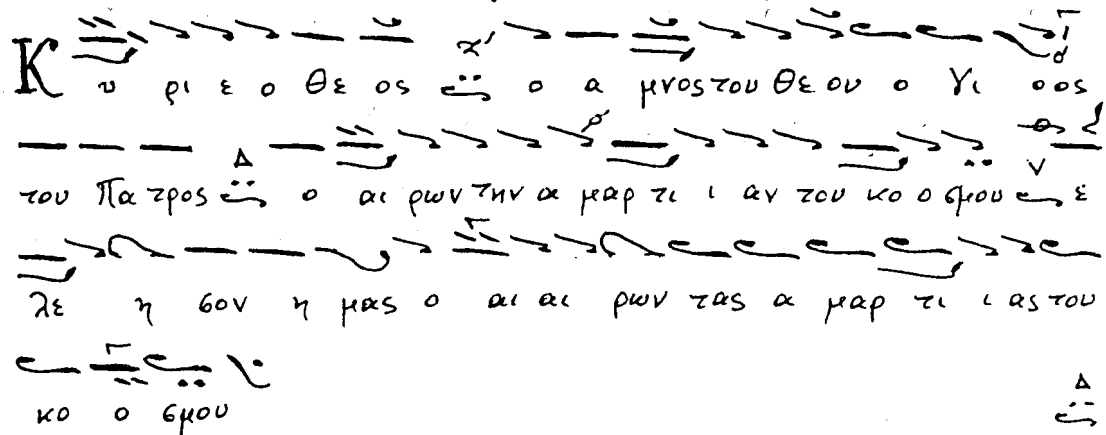 Κ υ ρι ε ο Θε ος ο α μνος του Θε ου ο Υι ο ος
του Πα τρος ο αι ρων την α μαρ τι ι αν του κο ο σμου ε
λε η σον η μας ο αι αι ρων τας α μαρ τι ι ας του
κο ο σμου